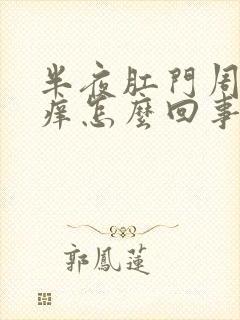 半夜肛門周
痒怎麼回事
郭鳳蓮